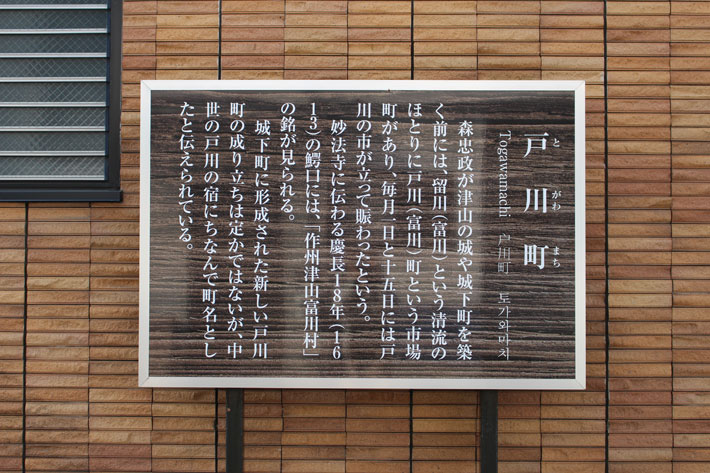 戸川町
とがわまち
Togawamachi 户川町 토가와마치
森忠政が津山の城や城下町を築
く前には、留川（富川）という清流の
ほとりに戸川（富川）町という市場
町があり、毎月一日と十五日には戸
川の市が立って賑わったという。
妙法寺に伝わる慶長18年（16
13）の鰐口には、「作州津山富川村」
の銘が見られる。
城下町に形成された新しい戸川
町の成り立ちは定かではないが、中
世の戸川の宿にちなんで町名とし
たと伝えられている。